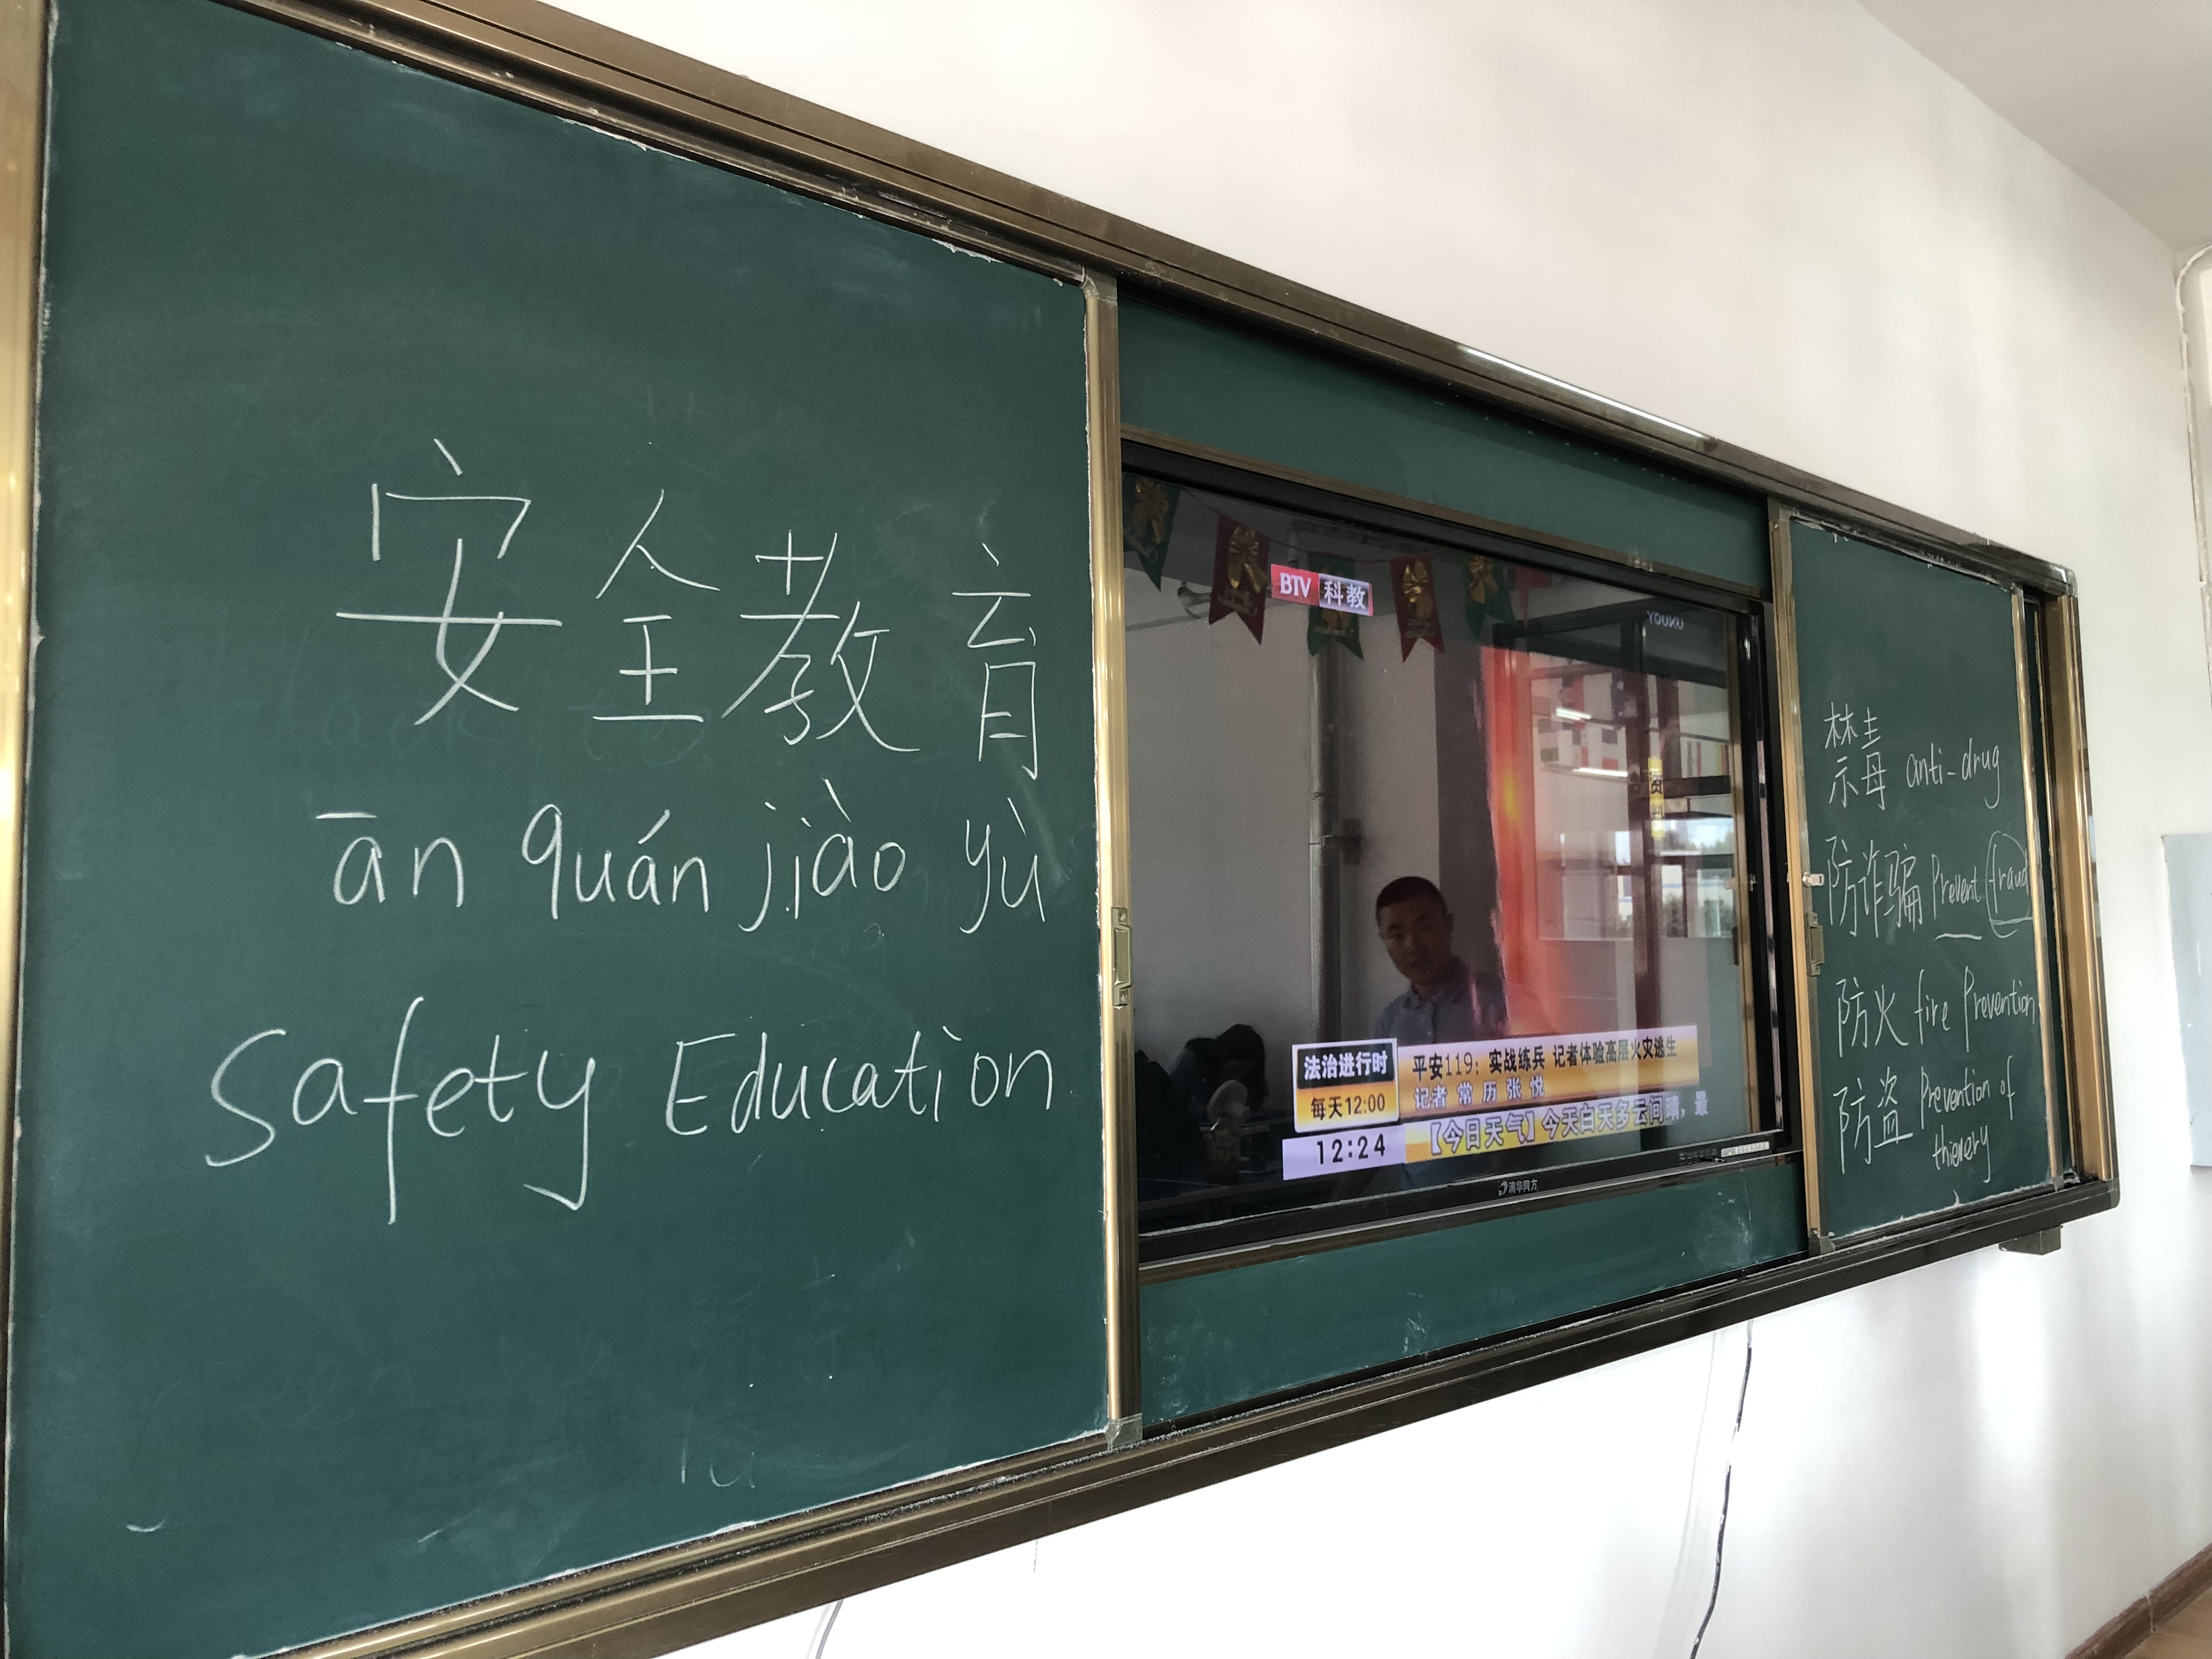 安全教育
ān quán jiào yù
Safety Education
BTV 科教
YOUKU
法治进行时
每天12:00
12:24
平安119：实战练兵 记者体验高层火灾逃生
记者 常 历 张 悦
【今日天气】今天白天多云间晴，最
清华同方
禁毒 anti-drug
防诈骗 Prevent fraud
防火 fire Prevention
防盗 Prevention of
thievery